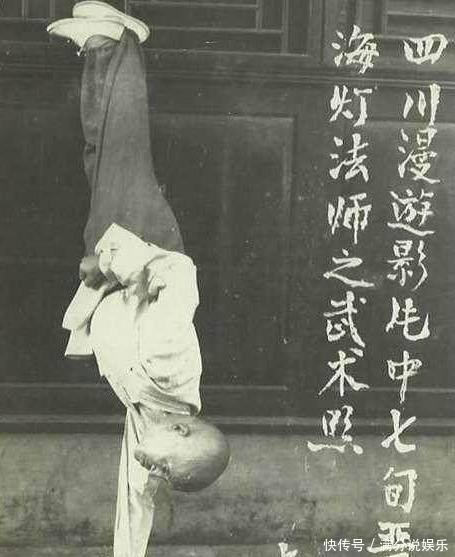 四川漫遊影片中七旬
海灯法师之武术照
快传号／满分说娱乐